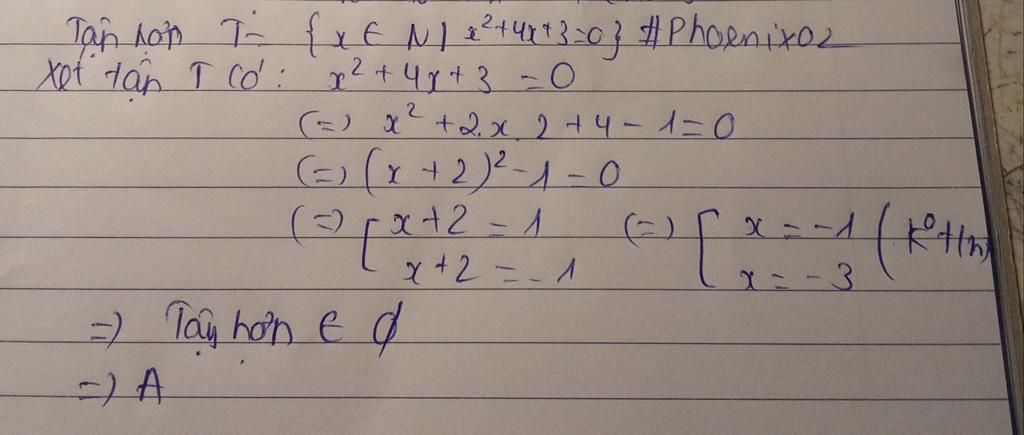 Tập hợp T = { x ∈ N | x² + 4x + 3 = 0 } #Phoenix02
Xét tập T có: x² + 4x + 3 = 0
(=) x² + 2.x.2 + 4 - 1 = 0
(=) (x + 2)² - 1 = 0
(=) [ x + 2 = 1 (=) [ x = -1 (k° t/m)
x + 2 = -1 x = -3
=) Tập hợp ∈ ∅
=) A